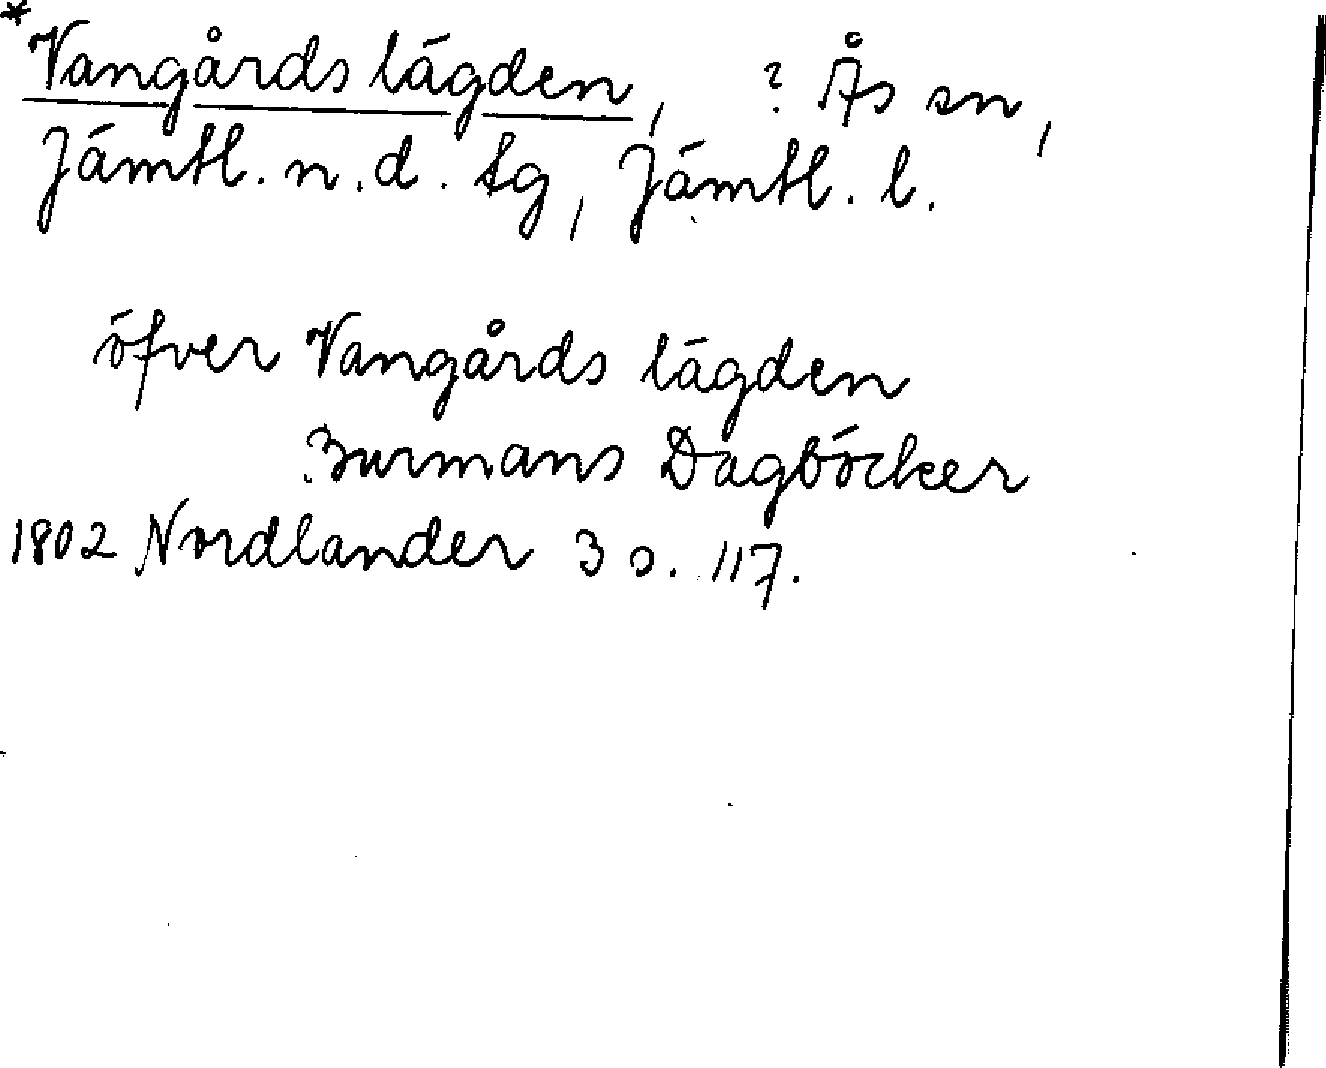 *Vangårds lägden, ? Ås sn,
Jämtl. n. d. tg, Jämtl. l.
öfver Vangårds lägden
Burmans Dagböcker
1802 Nordlander 3 s. 117.